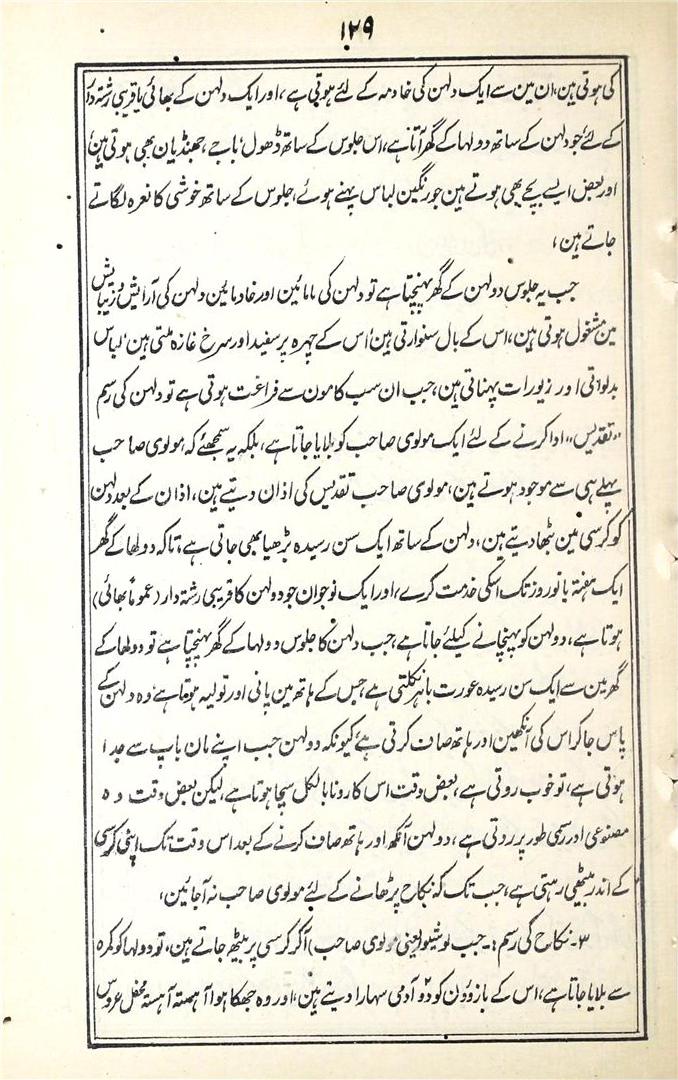 ۱۲۹
کی ہوتی ہین، ان مین سے ایک دلہن کی خادمہ کے لئے ہوتی ہے، اور ایک دلہن کے بھائی یا قریبی رشتہ دار
کے لئے جو دلہن کے ساتھ دولہا کے گھر آتا ہے، اس جلوس کے ساتھ ڈھول، باجے، جھنڈیان بھی ہوتی ہین،
اور بعض ایسے بچے بھی ہوتے ہین جو رنگین لباس پہنے ہوئے، جلوس کے ساتھ خوشی کا نعرہ لگاتے
جاتے ہین،
جب یہ جلوس دولہن کے گھر پہنچتا ہے تو دلہن کی مامائین اور خادمائین دلہن کی آرایش و زیبایش
مین مشغول ہوتی ہین، اس کے بال سنوارتی ہین، اس کے چہرہ پر سفید اور سرخ غازہ ملتی ہین، لباس
بدلواتی اور زیورات پہناتی ہین، جب ان سب کامون سے فراغت ہوتی ہے تو دلہن کی رسم
"تقدیس" ادا کرنے کے لئے ایک مولوی صاحب کو بلایا جاتا ہے، بلکہ یہ سمجھئے کہ مولوی صاحب
پہلے ہی سے موجود ہوتے ہین، مولوی صاحب تقدیس کی اذان دیتے ہین، اذان کے بعد دلہن
کو کرسی مین بٹھا دیتے ہین، دلہن کے ساتھ ایک سن رسیدہ بڑھیا بھی جاتی ہے، تاکہ دولھا کے گھر
ایک ہفتہ یا نو روز تک اسکی خدمت کرے، اور ایک نوجوان جو دولہن کا قریبی رشتہ دار (عموماً بھائی)
ہوتا ہے، دولہن کو پہنچانے کیلئے جاتا ہے، جب دلہن کا جلوس دولہا کے گھر پہنچتا ہے تو دولھا کے
گھر مین سے ایک سن رسیدہ عورت باہر نکلتی ہے، جس کے ہاتھ مین پانی اور تولیہ ہوتا ہے، وہ دلہن کے
پاس جاکر اس کی آنکھین اور ہاتھ صاف کرتی ہے، کیونکہ دولہن جب اپنے مان باپ سے جدا
ہوتی ہے، تو خوب روتی ہے، بعض وقت اس کا رونا بالکل سچا ہوتا ہے، لیکن بعض وقت وہ
مصنوعی اور رسمی طور پر روتی ہے، دولہن آنکھ اور ہاتھ صاف کرنے کے بعد اس وقت تک اپنی کرسی
کے اندر بیٹھی رہتی ہے، جب تک کہ نکاح پڑھانے کے لئے مولوی صاحب نہ آجائین،
۳- نکاح کی رسم :- جب (یعنی مولوی صاحب) آکر کرسی پر بیٹھ جاتے ہین، تو دولہا کو کمرہ
سے بلایا جاتا ہے، اس کے بازوؤن کو دو آدمی سہارا دیتے ہین، اور وہ جھکا ہوا آہستہ آہستہ محفل عروس